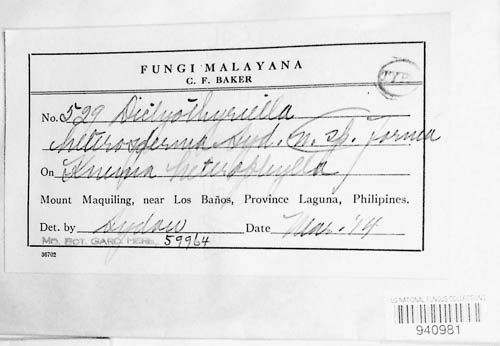 FUNGI MALAYANA
C. F. BAKER
No. 529 Dictyothyriella
heterosperma Syd. n. sp. forma
On Knema heterophylla
Mount Maquiling, near Los Baños, Province Laguna, Philipines.
Det. by Sydow Date Mar. '14
MO. BOT. GARD. HERB. 59964
36702
US NATIONAL FUNGUS COLLECTIONS
940981